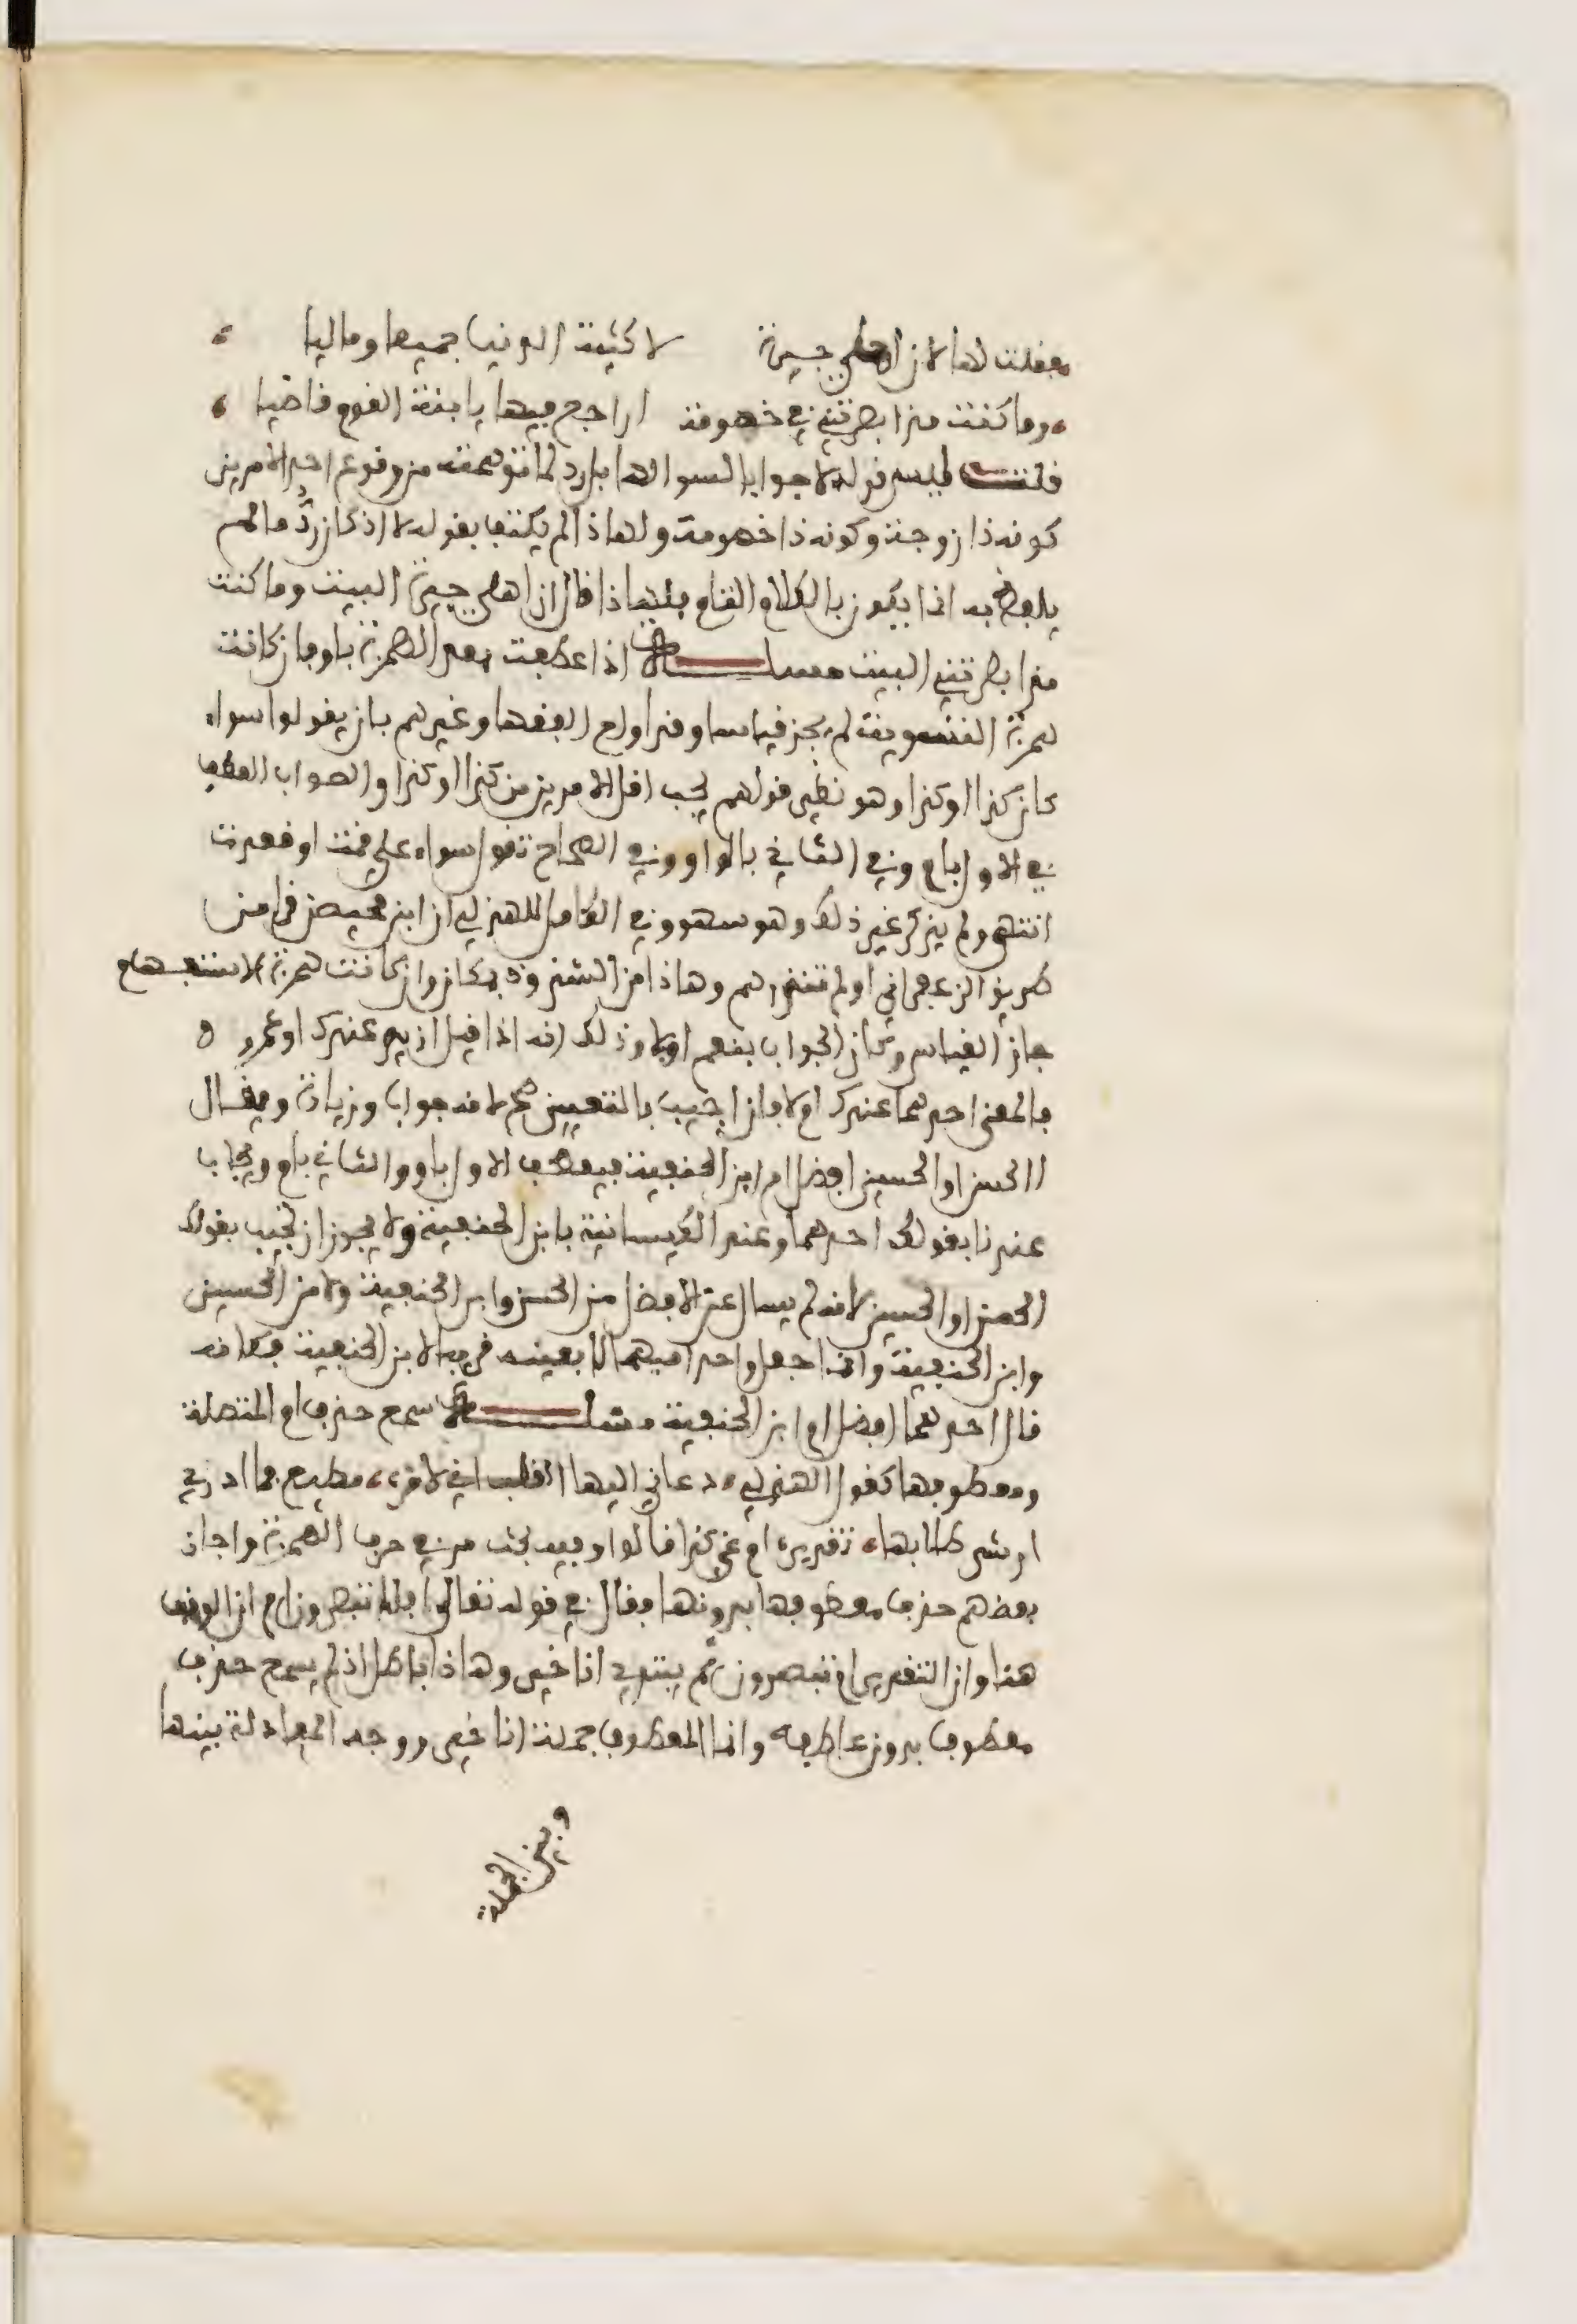 فقلت لها لا إن أهلي جيرة لأكثبة الدنيا جميعا وماليا
وما كنت مذ أبصرتني في خصومة أراجع فيها يا ابنة القوم قاضيا
قلت ليس قوله لا جوابا لسؤالها بل رد لما توهمته من وقوع احد الامرين
كونه ذا زوجة وكونه ذا خصومة ولهاذا لم يكتف بقوله لا اذ كان رد ما لم
يلفظ به انما يكون بالكلام التام فلهاذا قال ان اهلي جيرة البيت وما كنت
مذ ابصرتني البيت مسألة اذا عطفت بعد الهمزة باو فان كانت
همزة التسوية لم يجز قياسا وقد اولع الفقها وغيرهم بان يقولوا سواء
كان كذا او كذا وهو نظير قولهم يجب اقل الامرين من كذا او كذا والصواب العطف
في الاول بام وفي الثاني بالواو وفي الصحاح تقول سواء علي قمت او قعدت
انتهى ولم يذكر غير ذلك وهو سهو وفي الكامل للهذلي ان ابن محيصن قرا من
طريق الزعفراني او لم تنذرهم وهاذا من الشذوذ بمكان وان كانت همزة الاستفهام
جاز القياس وكان الجواب بنعم او بلا وذلك انه اذا قيل ازيد عندك او عمرو
فالمعنى احدهما عندك ام لا فان اجيب بالتعيين صح لانه جواب وزيادة ويقال
االحسن او الحسين افضل ام ابن الحنفية فيعطف الاول باو والثاني بام ويجاب
عندنا بقولك احدهما وعند الكيسانية بابن الحنفية ولا يجوز ان تجيب بقولك
الحسن او الحسين لانه لم يسال عن الافضل من الحسن وابن الحنفية ولا من الحسين
وابن الحنفية وانما جعل واحدا منهما لا بعينه قرينا لابن الحنفية فكانه
قال احدهما افضل ام ابن الحنفية مسألة سمع حذف ام المتصلة
ومعطوفها كقول الهذلي دعاني اليها القلب اني لامره مطيع فما ادري
ارشد طلابها تقديره ام غي كذا قالوا وفيه بحث مر في حرف الهمزة واجاز
بعضهم حذف معطوفها بدونها فقال في قوله تعالى افلا تبصرون ام ان الوقف
هنا وان التقدير ام تبصرون ثم يبتدي انا خير وهاذا باطل اذ لم يسمع حذف
معطوف بدون عاطفه وانما المعطوف جملة انا خير ووجه المعادلة بينها
وبين الجملة